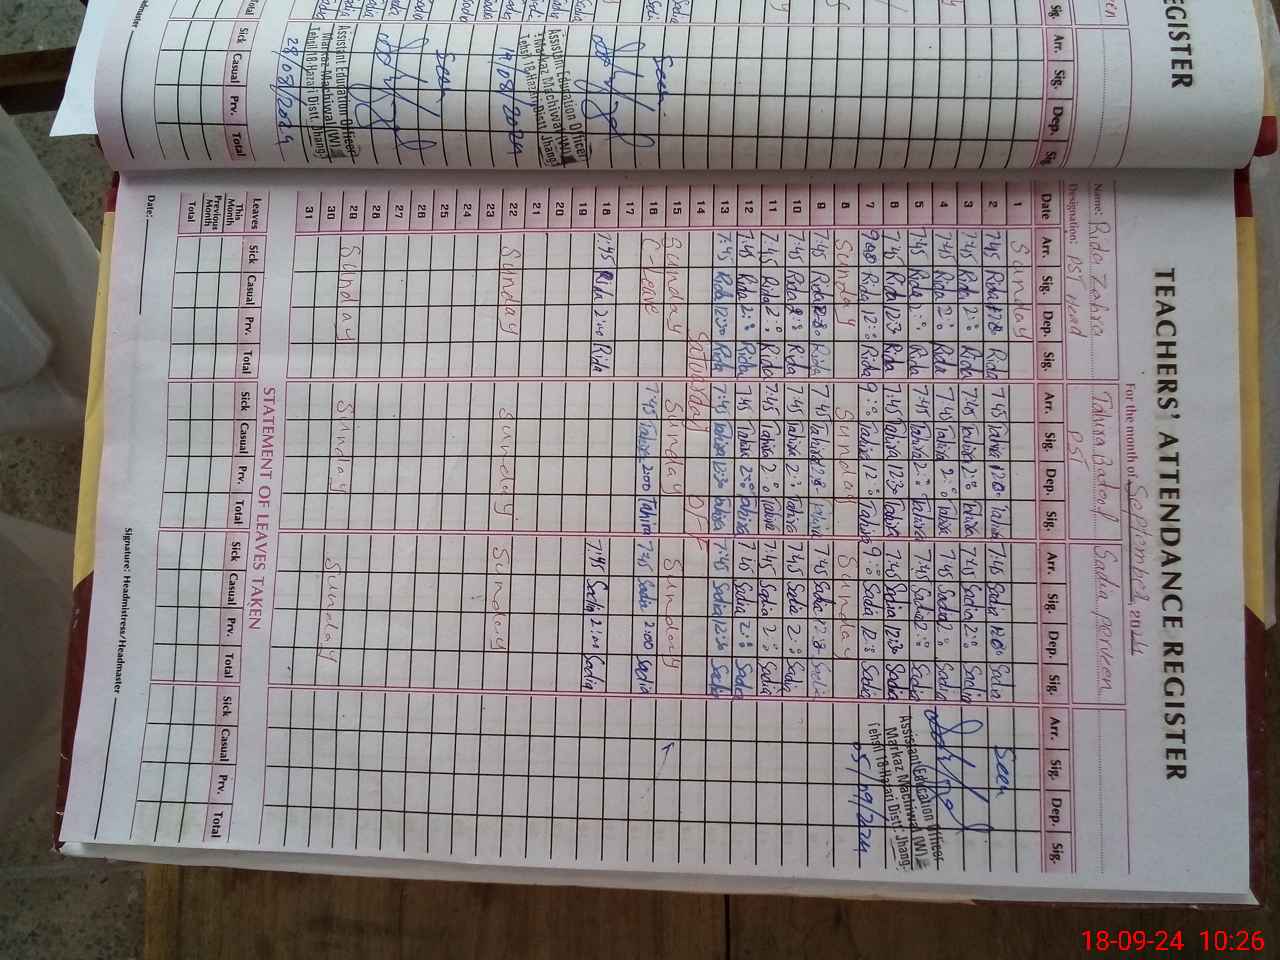 TEACHERS' ATTENDANCE REGISTER
For the month of September, 2024
Name: Rida Zahra
Designation: PST Head
Tahira
PST
Sadia parveen
Date Arr. Sig. Dep. Sig. Arr. Sig. Dep. Sig. Arr. Sig. Dep. Sig. Arr. Sig. Dep. Sig.
1 Sunday
2 7:45 Rida Rida 7:45 Tahira Tahira 7:45 Sadia Sadia
3 7:45 Rida 2:0 Rida 7:45 Tahira 2:0 Tahira 7:45 Sadia 2:0 Sadia
4 7:45 Rida 2:0 Rida 7:45 Tahira 2:0 Tahira 7:45 Sadia 2:0 Sadia
5 7:45 Rida 2:0 Rida 7:45 Tahira 2:0 Tahira 7:45 Sadia 2:0 Sadia
6 7:45 Rida 12:30 Rida 7:45 Tahira 12:30 Tahira 7:45 Sadia 12:30 Sadia
7 9:00 Rida 12:0 Rida 9:0 Tahira 12:0 Tahira 9:0 Sadia 12:0 Sadia
8 Sunday Sunday Sunday
9 7:45 Rida Rida 7:45 Tahira Tahira 7:45 Sadia Sadia
10 7:45 Rida Rida 7:45 Tahira 2:0 Tahira 7:45 Sadia 2:0 Sadia
11 7:45 Rida 2:0 Rida 7:45 Tahira 2:0 Tahira 7:45 Sadia 2:0 Sadia
12 7:45 Rida 2:0 Rida 7:45 Tahira 2:0 Tahira 7:45 Sadia 2:0 Sadia
13 7:45 Rida 12:30 Rida 7:45 Tahira 12:30 Tahira 7:45 Sadia 12:30 Sadia
14 Saturday OFF
15 Sunday Sunday Sunday
16 C-leave 7:45 Tahira 2:00 Tahira 7:45 Sadia 2:00 Sadia
17
18 7:45 Rida 2:00 Rida 7:45 Sadia 2:00 Sadia
19
20
21
22 Sunday Sunday Sunday
23
24
25
26
27
28
29 Sunday Sunday Sunday
30
31
Seen
Assistant Education Officer
Markaz Machiwal (W)
Tehsil 18-Hazari Distt. Jhang.
05/09/2024
STATEMENT OF LEAVES TAKEN
Leaves Sick Casual Prv. Total Sick Casual Prv. Total Sick Casual Prv. Total Sick Casual Prv. Total
This Month
Previous Month
Total
Date:
Signature: Headmistress/Headmaster
EGISTER
Sig. Arr. Sig. Dep. Sig
Seen
Assistant Education Officer
Markaz Machiwal (W)
Tehsil 18-Hazari Distt. Jhang
19/08/2024
Seen
Assistant Education Officer
Markaz Machiwal (W)
Tehsil 18-Hazari Distt. Jhang
28/08/2024
Sick Casual Prv. Total
18-09-24 10:26